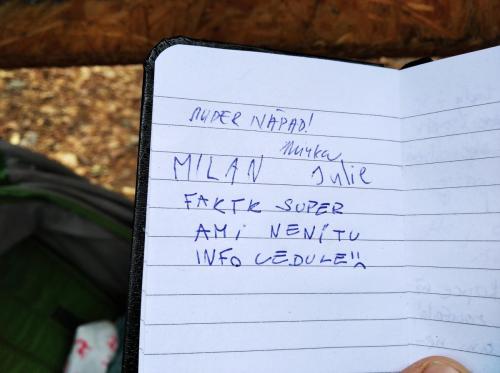 SUPER NÁPAD!
MILAN Julie
FAKTK SUPER
AMI NENÍ TU
INFO CEDULE!!